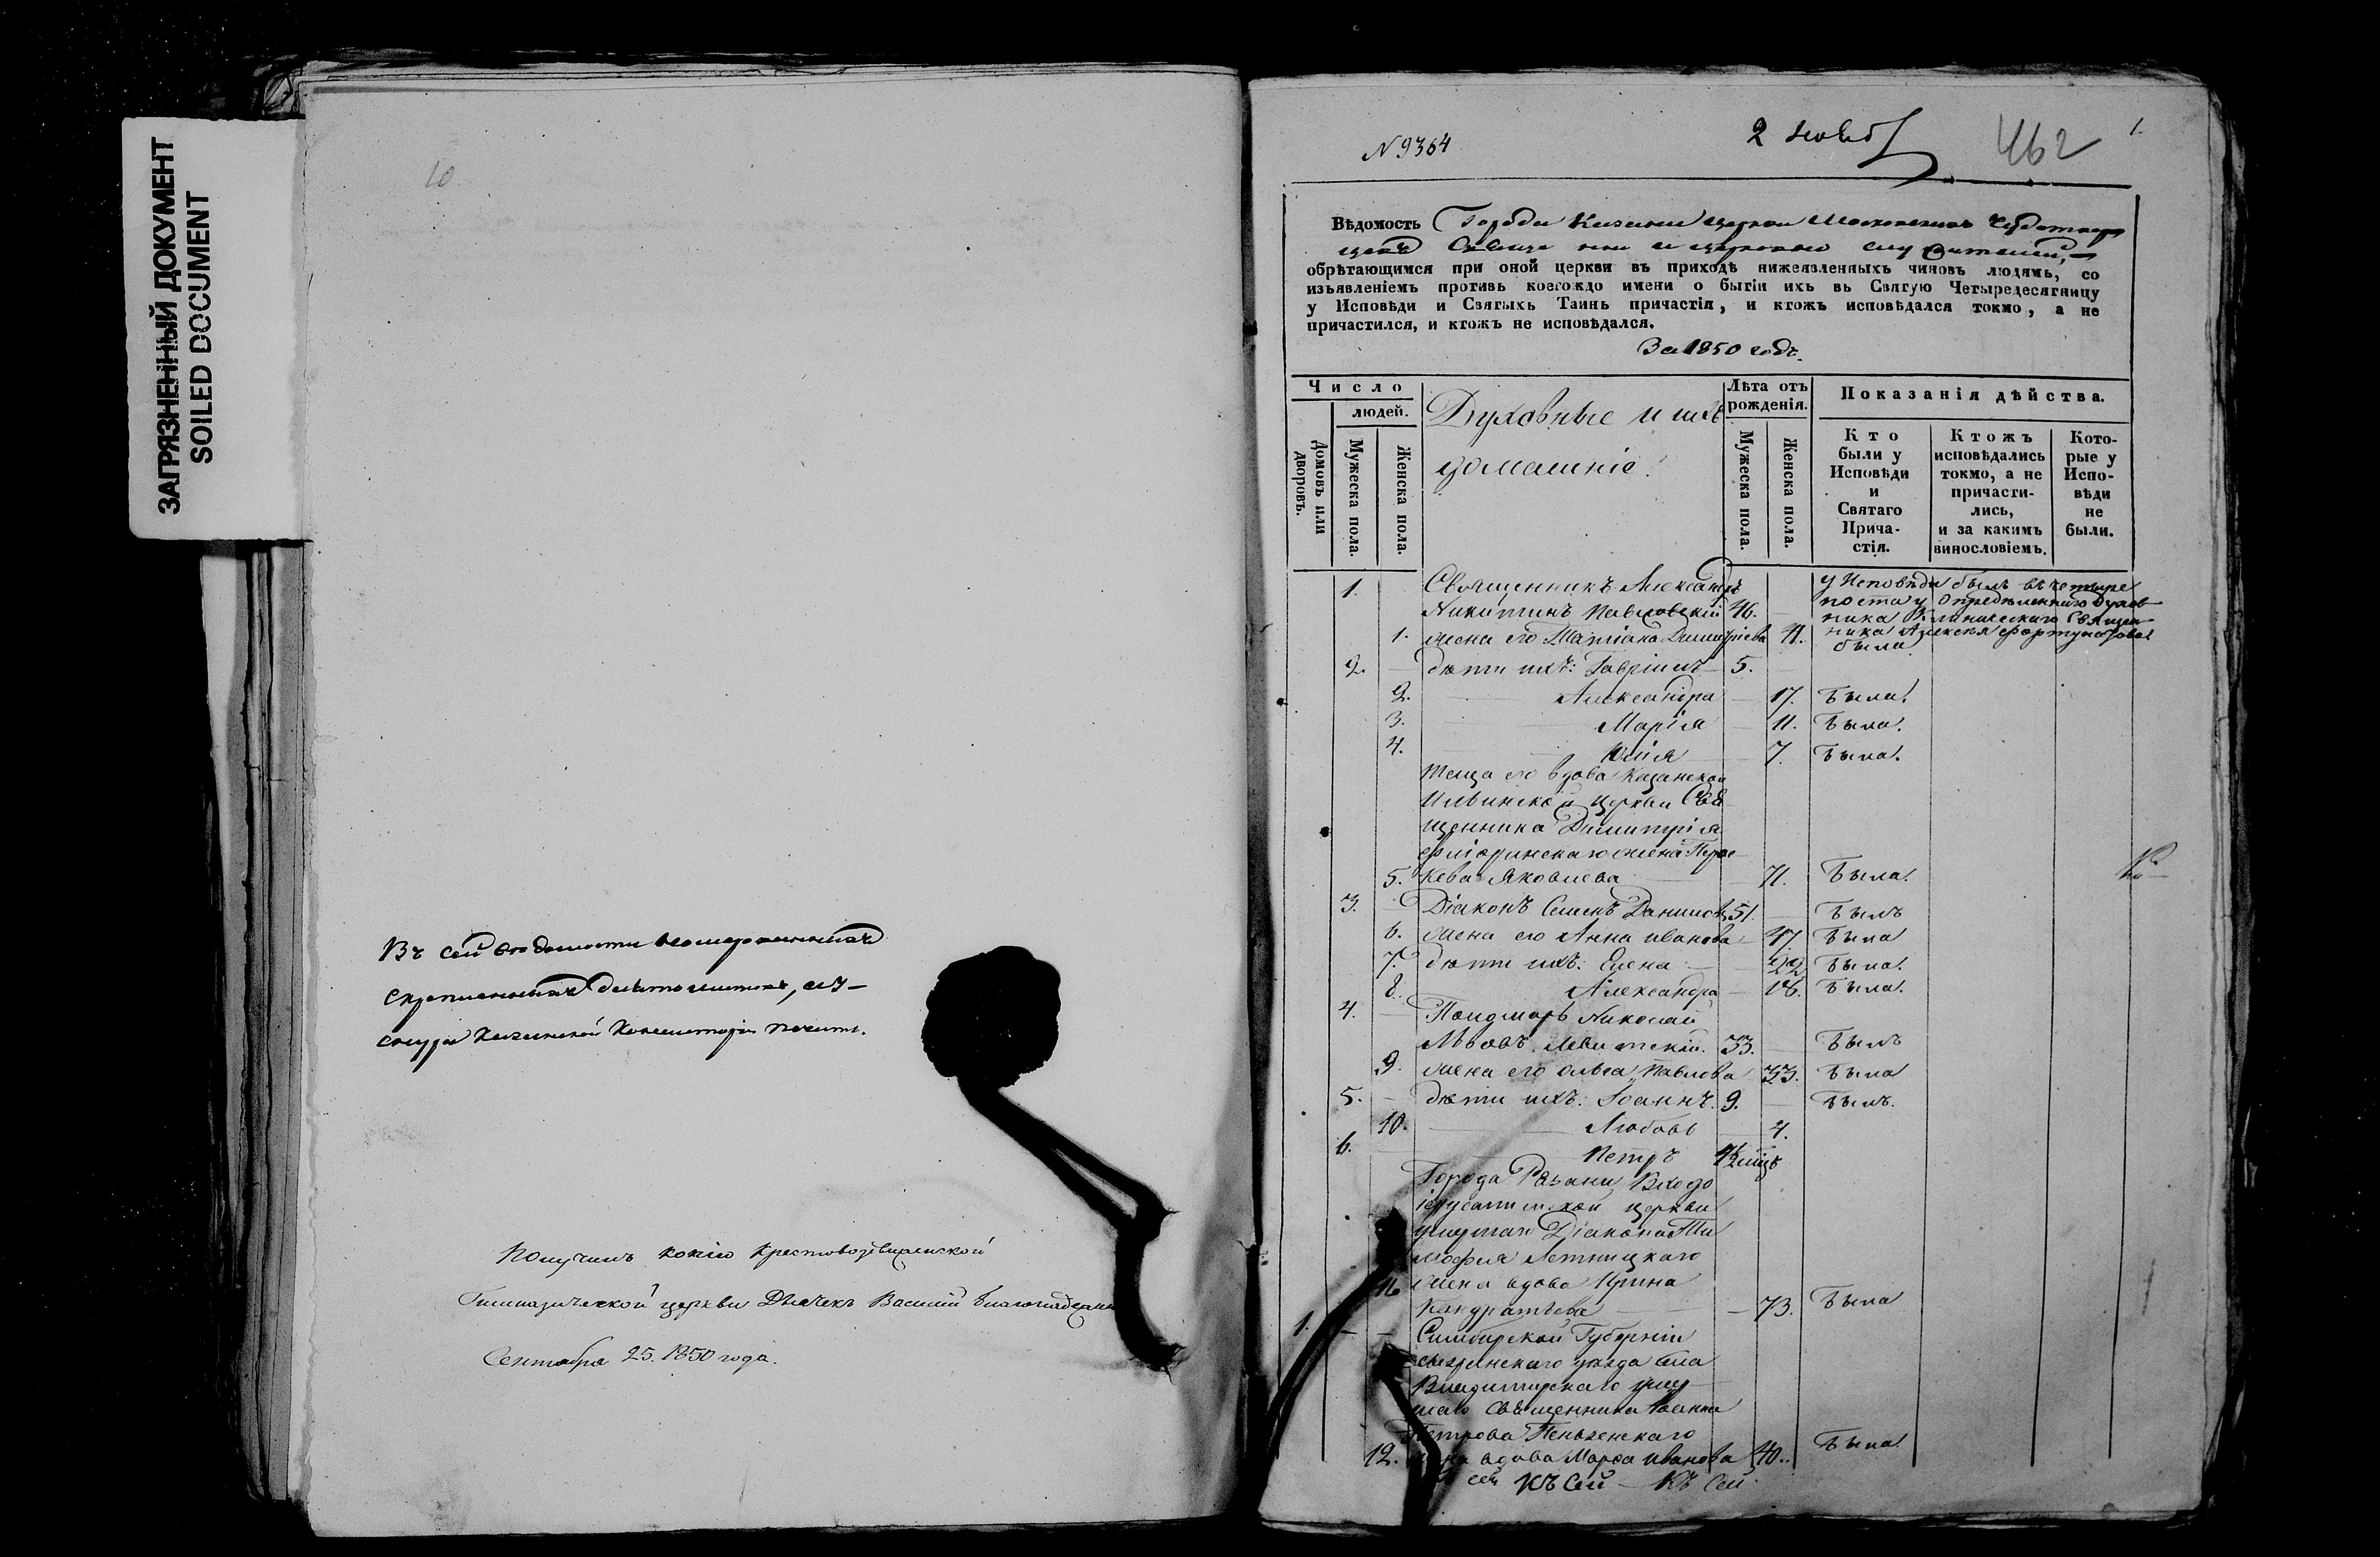 ЗАГРЯЗНЕННЫЙ ДОКУМЕНТ
SOILED DOCUMENT
10
Въ сей вѣдомости
скрепленныхъ
Казанской Консисторіи печать.
Получилъ копію Крестовоздвиженской
Гимназической церкви Дьячекъ Василій
Сентября 25. 1850 года.
N 9364
2
462
1.
Вѣдомость Города Казани церкви Московскихъ Чудотвор
цевъ Священно и церковно служителей,
обрѣтающимся при оной церкви въ приходѣ нижеявленныхъ чиновъ людямъ, со
изъявленіемъ противъ коегождо имени о бытіи ихъ въ Святую Четыредесятницу
у Исповѣди и Святыхъ Таинъ причастія, и ктожъ исповѣдался токмо, а не
причастился, и ктожъ не исповѣдался.
За 1850 годъ.
Число
людей.
Домовъ или дворовъ.
Мужеска пола.
Женска пола.
Духовные и ихъ
домашніе.
Лѣта отъ рожденія.
Мужеска пола.
Женска пола.
Показанія дѣйства.
Кто были у Исповѣди и Святаго Прича-стія.
Ктожъ исповѣдались токмо, а не причасти-лись, и за какимъ винословіемъ.
Кото-рые у Испо-вѣди не были.
1. Священникъ Александръ
Никитинъ Павловскій 46.
у Исповѣди былъ въ четыре
поста у опредѣленнаго духов
ника Клиническаго Священ
ника Алексѣя Фортунатова
1. жена его Татіана Димитріева 41. была
2. — дѣти ихъ: Гавріилъ 5.
2. Александра — 17. была.
3. Марія — 11. была.
4. Юлія — 7. была.
Теща его вдова Казанской
Ильинской церкви Свя
щенника Димитрія
жена Парас
5. кева Яковлева — 71. была.
3. — Діаконъ Семенъ Даниловъ 51. — былъ
6. жена его Анна Иванова — 47. была
7. дѣти ихъ: Елена — 22 была.
8. Александра — 16. была.
4. — Пономарь Николай
Львовъ Левитскій. 33. — былъ
9. жена его Ольга Павлова 33. была
5. — дѣти ихъ: Іоаннъ. 9. — былъ.
10. Любовь 4.
6. Петръ
Города Казани Входо
іерусалимской церкви
умершаго Діакона Ти
мофея Летницкаго
жена вдова Ирина
Кандратьева — 73. была
1. — — Симбирской Губерніи
Сызранскаго уѣзда села
Владимирскаго умер
шаго Священника Іоанна
Петрова Пензенскаго
12. жена вдова Марфа Иванова 40. была
Къ сей — Къ сей